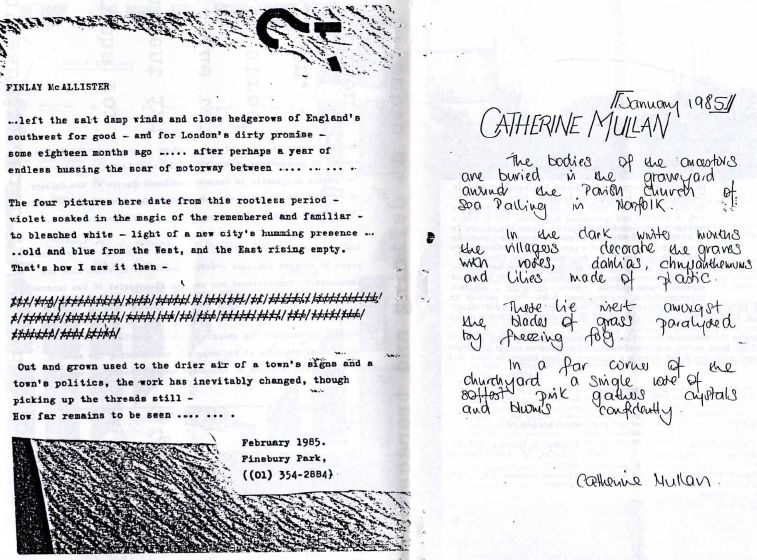 FINLAY McALLISTER
...left the salt damp winds and close hedgerows of England's
southwest for good - and for London's dirty promise -
some eighteen months ago ..... after perhaps a year of
endless bussing the scar of motorway between .... ... .. .
The four pictures here date from this rootless period -
violet soaked in the magic of the remembered and familiar -
to bleached white - light of a new city's humming presence ...
..old and blue from the West, and the East rising empty.
That's how I saw it then -
Out and grown used to the drier air of a town's signs and a
town's politics, the work has inevitably changed, though
picking up the threads still -
How far remains to be seen .... ... .
February 1985.
Finsbury Park,
((01) 354-2884)
January 1985
CATHERINE MULLAN
The bodies of the ancestors
are buried in the graveyard
around the Parish Church of
Sea Palling in Norfolk.
In the dark winter months
the villagers decorate the graves
with roses, dahlias, chrysanthemums
and lilies made of plastic.
These lie inert amongst
the blades of grass paralyzed
by freezing fog.
In a far corner of the
churchyard a single rose of
softest pink gathers crystals
and blooms confidently.
Catherine Mullan.